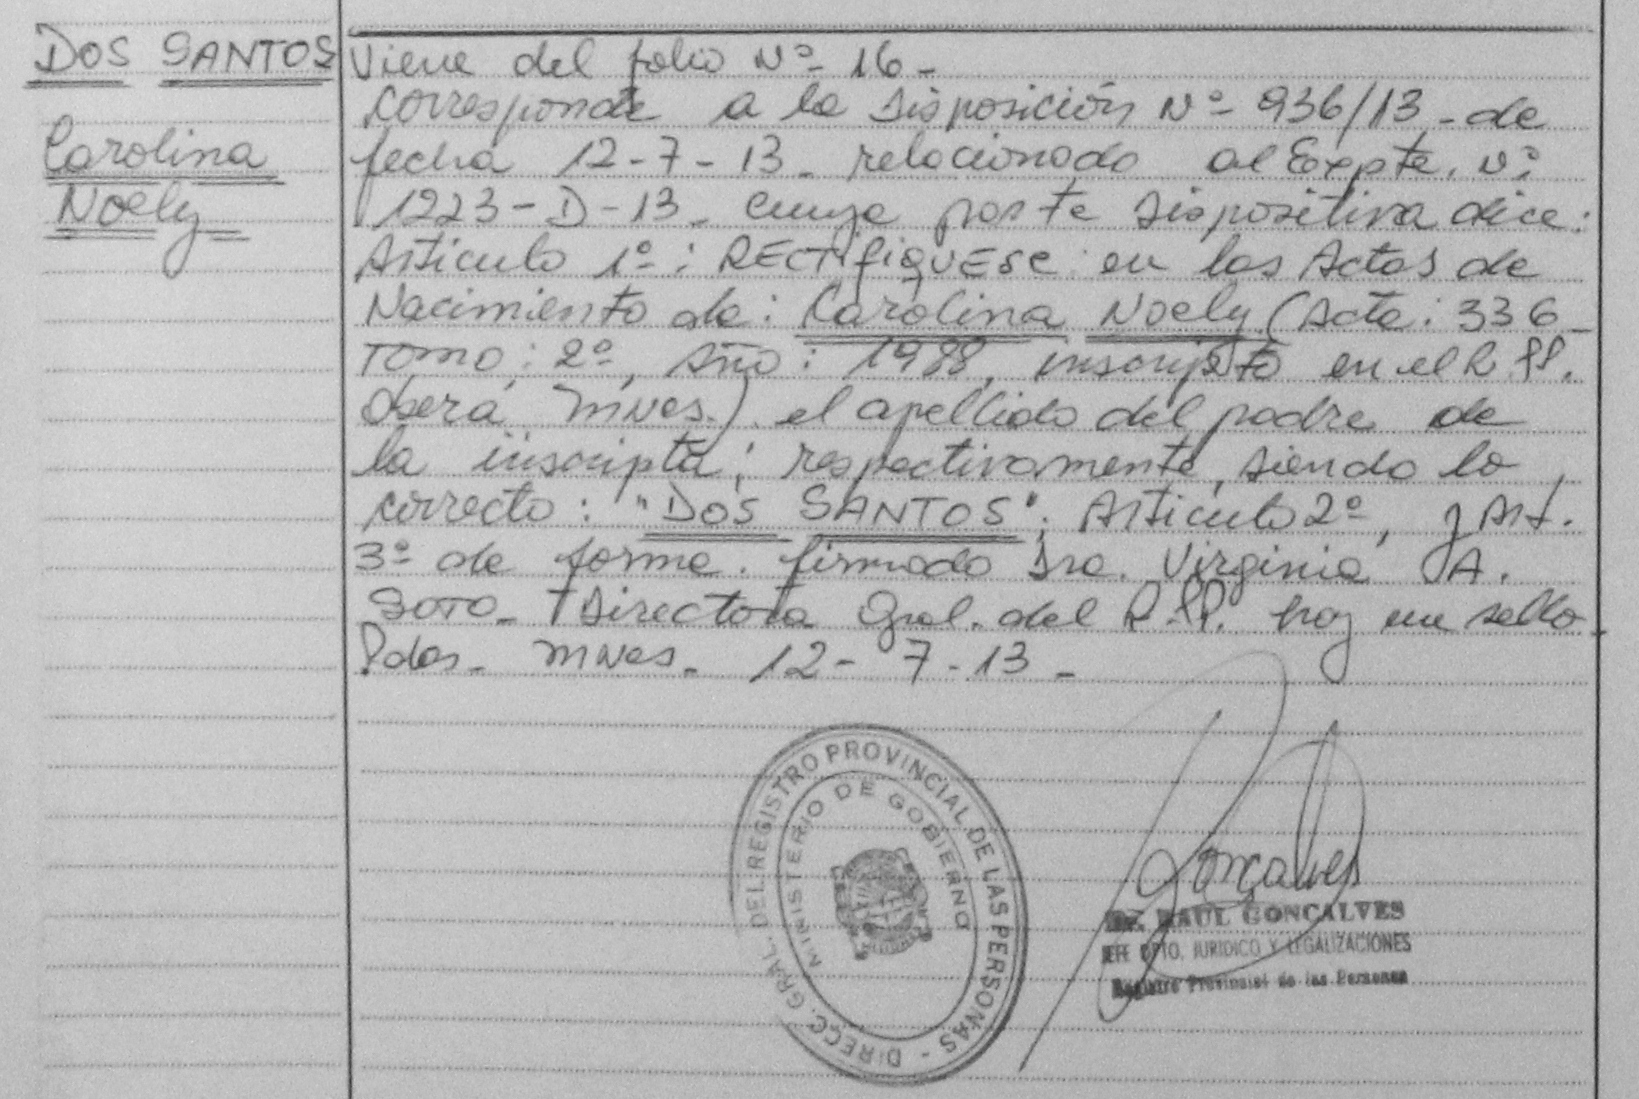 DOS SANTOS
Carolina
Noely
Viene del folio Nº 16-
Corresponde a la Disposición Nº 936/13 - de
fecha 12-7-13 - relacionado al Expte. Nº
1223-D-13 - cuya parte dispositiva dice:
Artículo 1º: RECTIFIQUESE: en las Actas de
Nacimiento de: Carolina Noely (Acta: 336-
Tomo: 2º, Año: 1988, inscripta en el R.PP.
Oberá Mnes.) el apellido del padre de
la inscripta; respectivamente, siendo lo
correcto: "DOS SANTOS". Artículo 2º, y Art.
3º de forma. firmado Dra. Virginia A.
SOTO - Directora Gral. del R.PP. hay un sello
Pdas. Mnes. 12-7-13-
DIRECC. GRAL. DEL REGISTRO PROVINCIAL DE LAS PERSONAS -
MINISTERIO DE GOBIERNO
Gonçalves
Dr. RAUL GONCALVES
JEFE DPTO. JURIDICO Y LEGALIZACIONES
Registro Provincial de las Personas